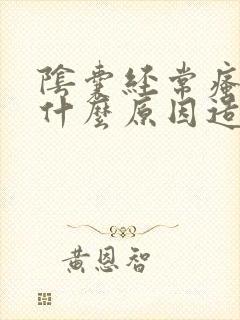 陰囊經常瘙
什麼原因造
黃恩智